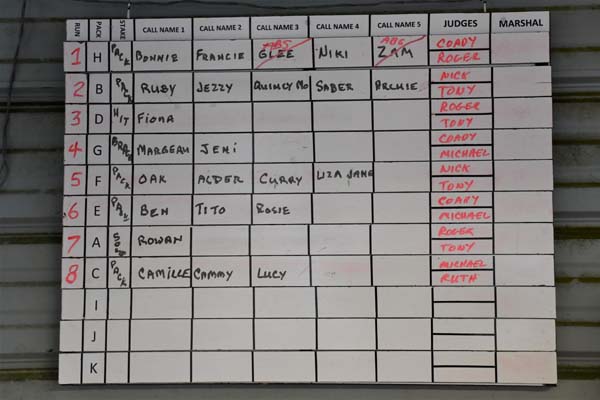 RUN PACK STAKE CALL NAME 1 CALL NAME 2 CALL NAME 3 CALL NAME 4 CALL NAME 5 JUDGES MARSHAL
1 H PACK BONNIE FRANCIE ABS GLEE NIKI ABS ZAM COADY ROGER
2 B PACK RUBY JEZZY QUINCY MO SABER ARCHIE NICK TONY
3 D HIT FIONA ROGER TONY
4 G BRACE MARGEAU JENI COADY MICHAEL
5 F PACK OAK ALDER CURRY LIZA JANE NICK TONY
6 E PACK BEN TITO ROSIE COADY MICHAEL
7 A ROWAN ROGER TONY
8 C PACK CAMILLE CAMMY LUCY MICHAEL RUTH
I
J
K